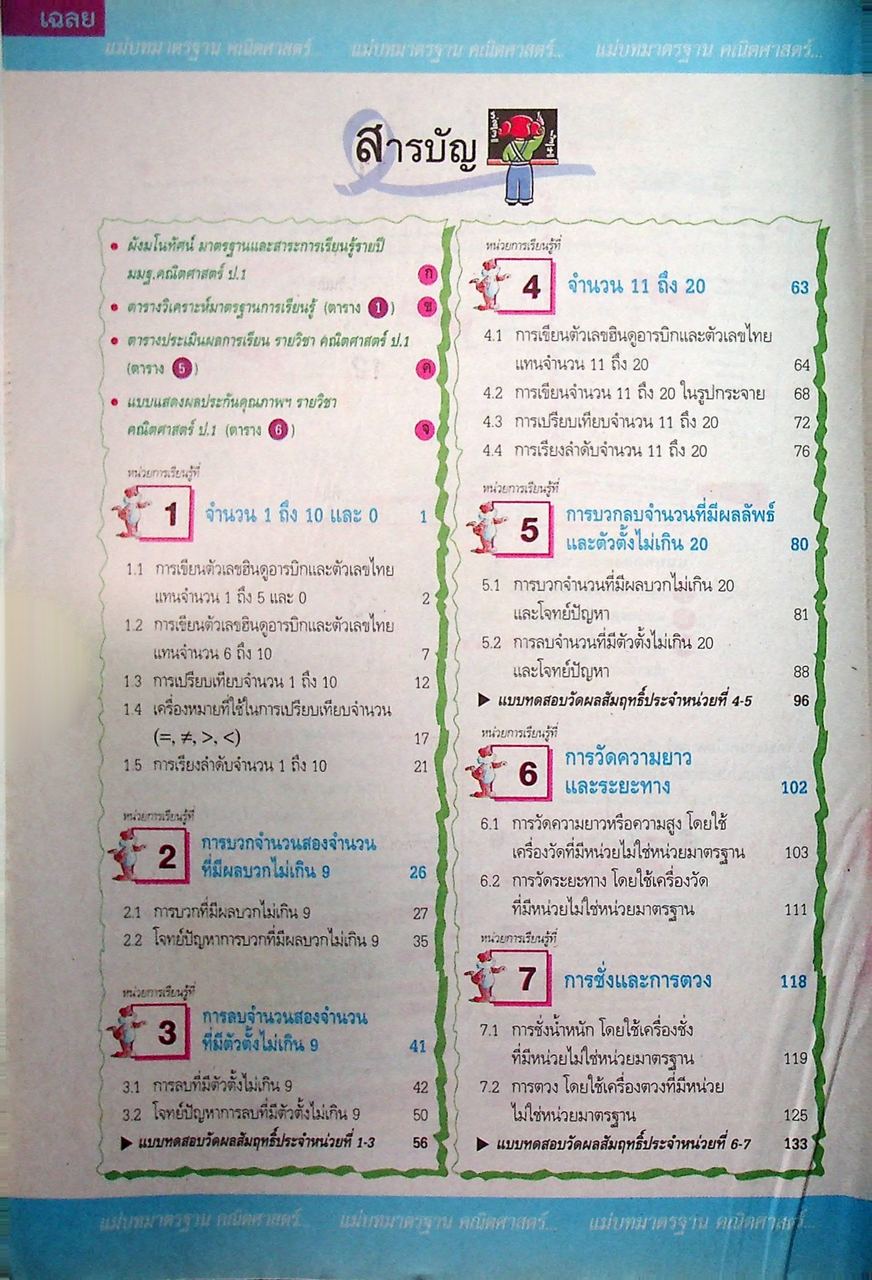 เฉลย
แม่บทมาตรฐาน คณิตศาสตร์... แม่บทมาตรฐาน คณิตศาสตร์... แม่บทมาตรฐาน คณิตศาสตร์...
สารบัญ
• ผังมโนทัศน์ มาตรฐานและสาระการเรียนรู้รายปี
มมฐ.คณิตศาสตร์ ป.1 ก
• ตารางวิเคราะห์มาตรฐานการเรียนรู้ (ตาราง 1) ข
• ตารางประเมินผลการเรียน รายวิชา คณิตศาสตร์ ป.1
(ตาราง 5) ค
• แบบแสดงผลประกันคุณภาพฯ รายวิชา
คณิตศาสตร์ ป.1 (ตาราง 6) จ
หน่วยการเรียนรู้ที่
1 จำนวน 1 ถึง 10 และ 0 1
1.1 การเขียนตัวเลขฮินดูอารบิกและตัวเลขไทย
แทนจำนวน 1 ถึง 5 และ 0 2
1.2 การเขียนตัวเลขฮินดูอารบิกและตัวเลขไทย
แทนจำนวน 6 ถึง 10 7
1.3 การเปรียบเทียบจำนวน 1 ถึง 10 12
1.4 เครื่องหมายที่ใช้ในการเปรียบเทียบจำนวน
(=, ≠, >, <) 17
1.5 การเรียงลำดับจำนวน 1 ถึง 10 21
หน่วยการเรียนรู้ที่
2 การบวกจำนวนสองจำนวน
ที่มีผลบวกไม่เกิน 9 26
2.1 การบวกที่มีผลบวกไม่เกิน 9 27
2.2 โจทย์ปัญหาการบวกที่มีผลบวกไม่เกิน 9 35
หน่วยการเรียนรู้ที่
3 การลบจำนวนสองจำนวน
ที่มีตัวตั้งไม่เกิน 9 41
3.1 การลบที่มีตัวตั้งไม่เกิน 9 42
3.2 โจทย์ปัญหาการลบที่มีตัวตั้งไม่เกิน 9 50
▶ แบบทดสอบวัดผลสัมฤทธิ์ประจำหน่วยที่ 1-3 56
หน่วยการเรียนรู้ที่
4 จำนวน 11 ถึง 20 63
4.1 การเขียนตัวเลขฮินดูอารบิกและตัวเลขไทย
แทนจำนวน 11 ถึง 20 64
4.2 การเขียนจำนวน 11 ถึง 20 ในรูปกระจาย 68
4.3 การเปรียบเทียบจำนวน 11 ถึง 20 72
4.4 การเรียงลำดับจำนวน 11 ถึง 20 76
หน่วยการเรียนรู้ที่
5 การบวกลบจำนวนที่มีผลลัพธ์
และตัวตั้งไม่เกิน 20 80
5.1 การบวกจำนวนที่มีผลบวกไม่เกิน 20
และโจทย์ปัญหา 81
5.2 การลบจำนวนที่มีตัวตั้งไม่เกิน 20
และโจทย์ปัญหา 88
▶ แบบทดสอบวัดผลสัมฤทธิ์ประจำหน่วยที่ 4-5 96
หน่วยการเรียนรู้ที่
6 การวัดความยาว
และระยะทาง 102
6.1 การวัดความยาวหรือความสูง โดยใช้
เครื่องวัดที่มีหน่วยไม่ใช่หน่วยมาตรฐาน 103
6.2 การวัดระยะทาง โดยใช้เครื่องวัด
ที่มีหน่วยไม่ใช่หน่วยมาตรฐาน 111
หน่วยการเรียนรู้ที่
7 การชั่งและการตวง 118
7.1 การชั่งน้ำหนัก โดยใช้เครื่องชั่ง
ที่มีหน่วยไม่ใช่หน่วยมาตรฐาน 119
7.2 การตวง โดยใช้เครื่องตวงที่มีหน่วย
ไม่ใช่หน่วยมาตรฐาน 125
▶ แบบทดสอบวัดผลสัมฤทธิ์ประจำหน่วยที่ 6-7 133
แม่บทมาตรฐาน คณิตศาสตร์... แม่บทมาตรฐาน คณิตศาสตร์... แม่บทมาตรฐาน คณิตศาสตร์...